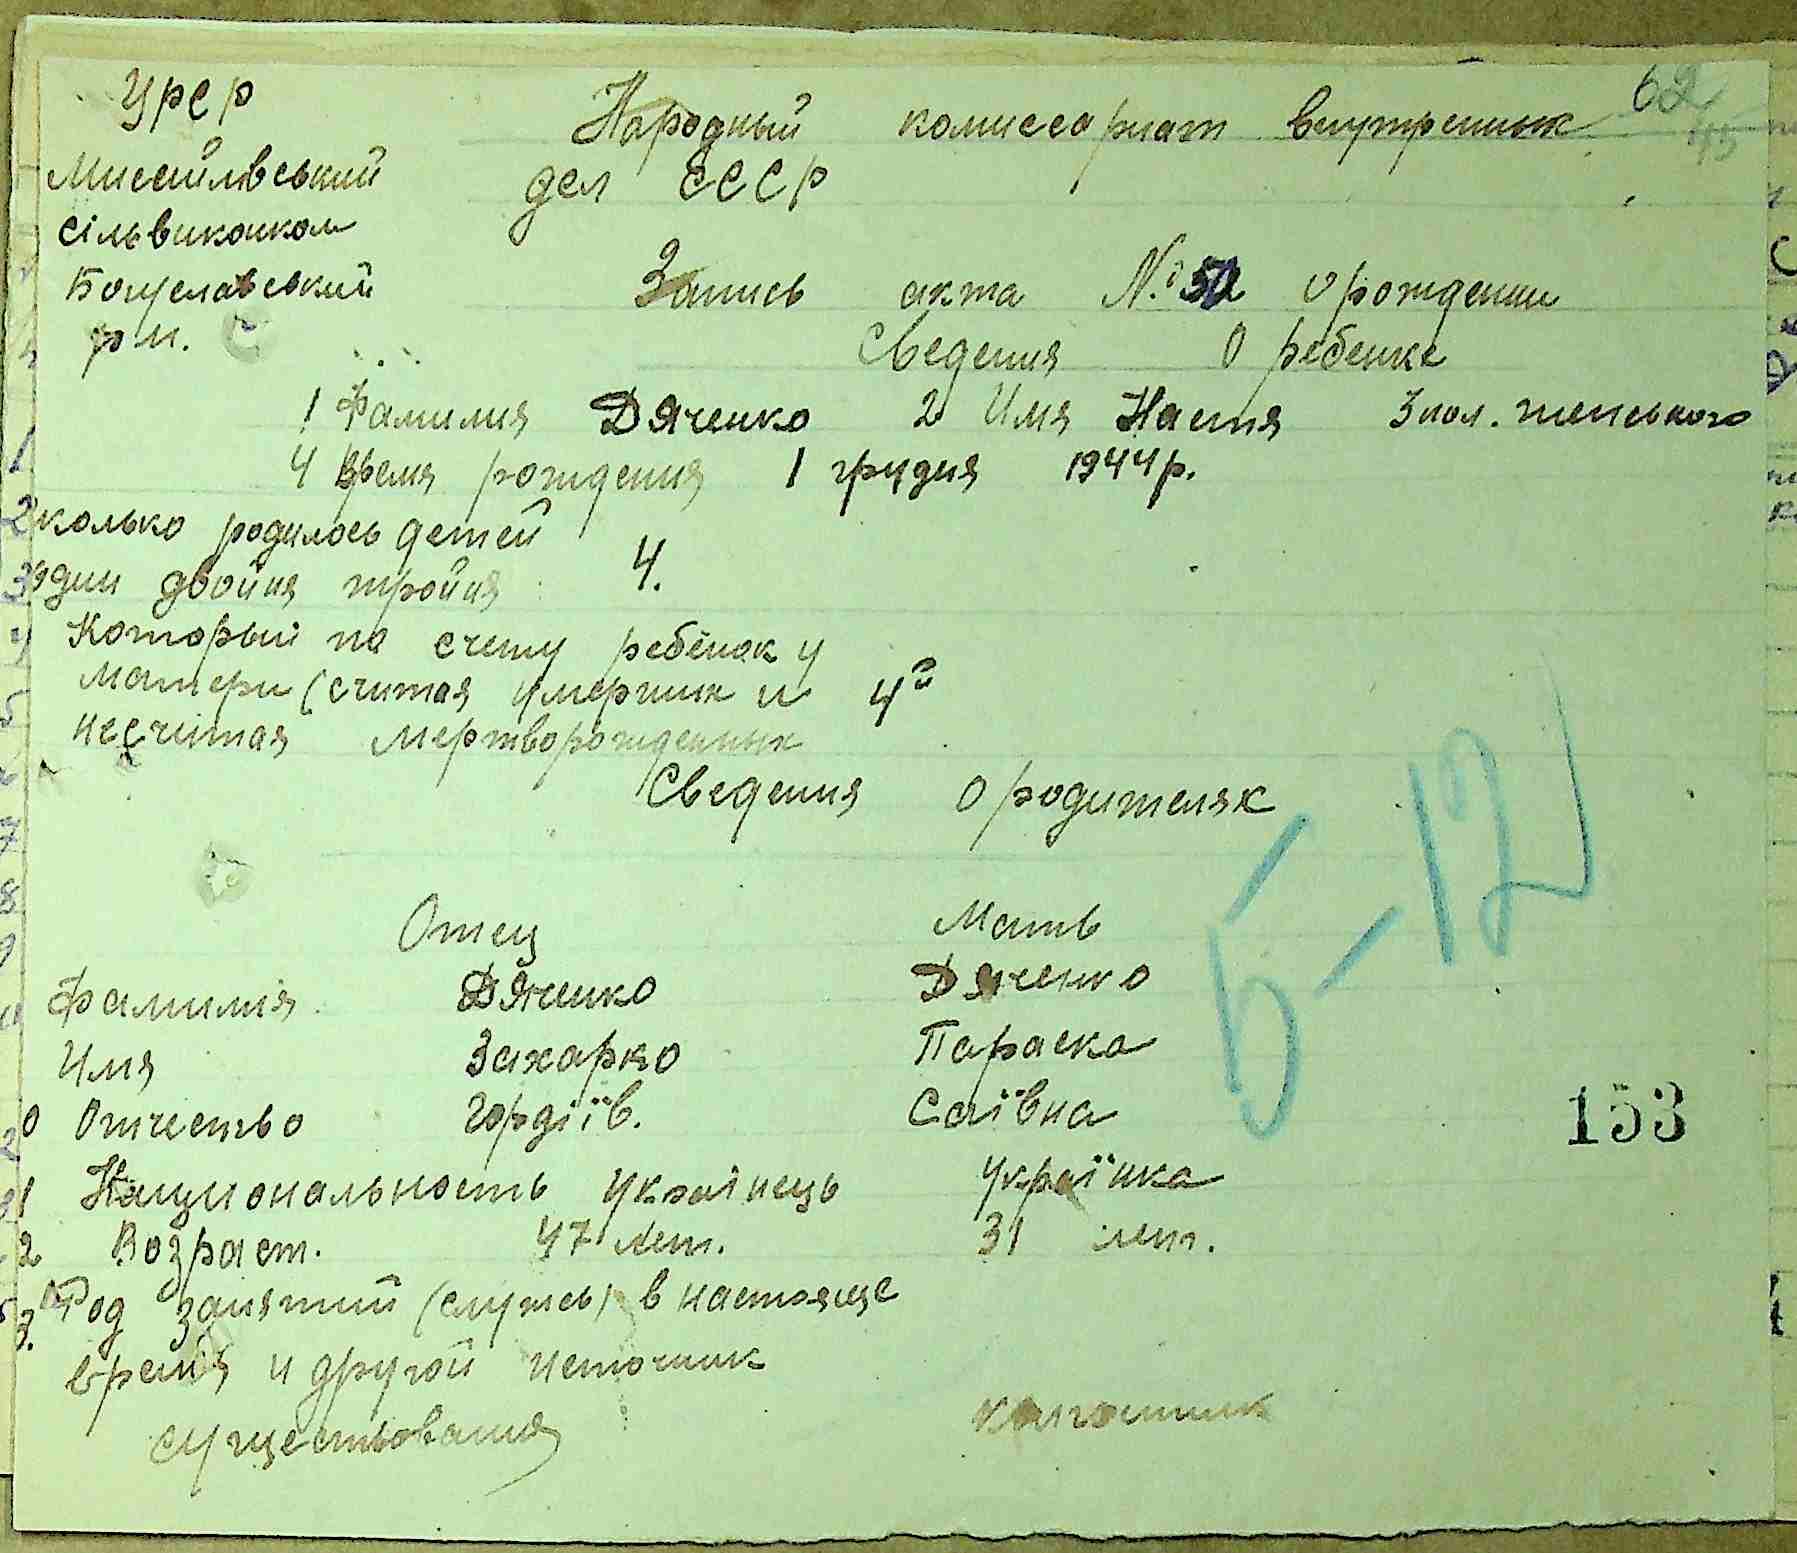 УРСР
Народный комиссариат внутренных
дел СССР
Мисайлівський
сільвиконком
Богуславський
р н.
62
Запись акта №50 о рождении
Сведения о ребенке
1 Фамилия Дяченко 2 Имя Настя 3 пол. женського
4 Время рождения 1 грудня 1944 р.
сколько родилось детей
один двойня тройня 4.
Который по счету ребёнок у
матери (считая умерших и 4й
несчитая мертворожденных
Сведения о родителях
Отец Мать
Фамилия Дяченко Дяченко
Имя Захарко Параска
0 Отчество Гордіїв. Саївна
1 Национальность українець українка
2 Возраст. 47 лет. 31 лет.
3. Род занятий (службы) в настояще
время и другой источник
существования колгошник
5-12
153